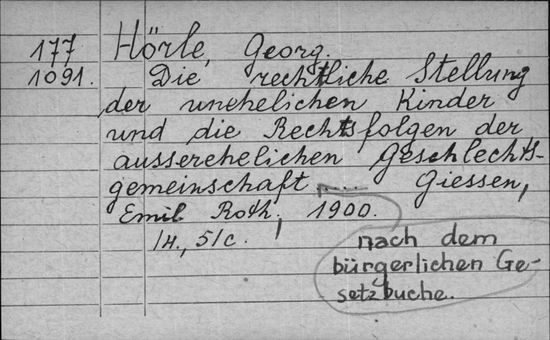 177 Hörle, Georg.
1091. Die rechtliche Stellung
der unehelichen Kinder
und die Rechtsfolgen der
ausserehelichen Geschlechts-
gemeinschaft ..... Giessen,
Emil Roth, 1900.
14., 51c.
nach dem
bürgerlichen Ge-
setzbuche.